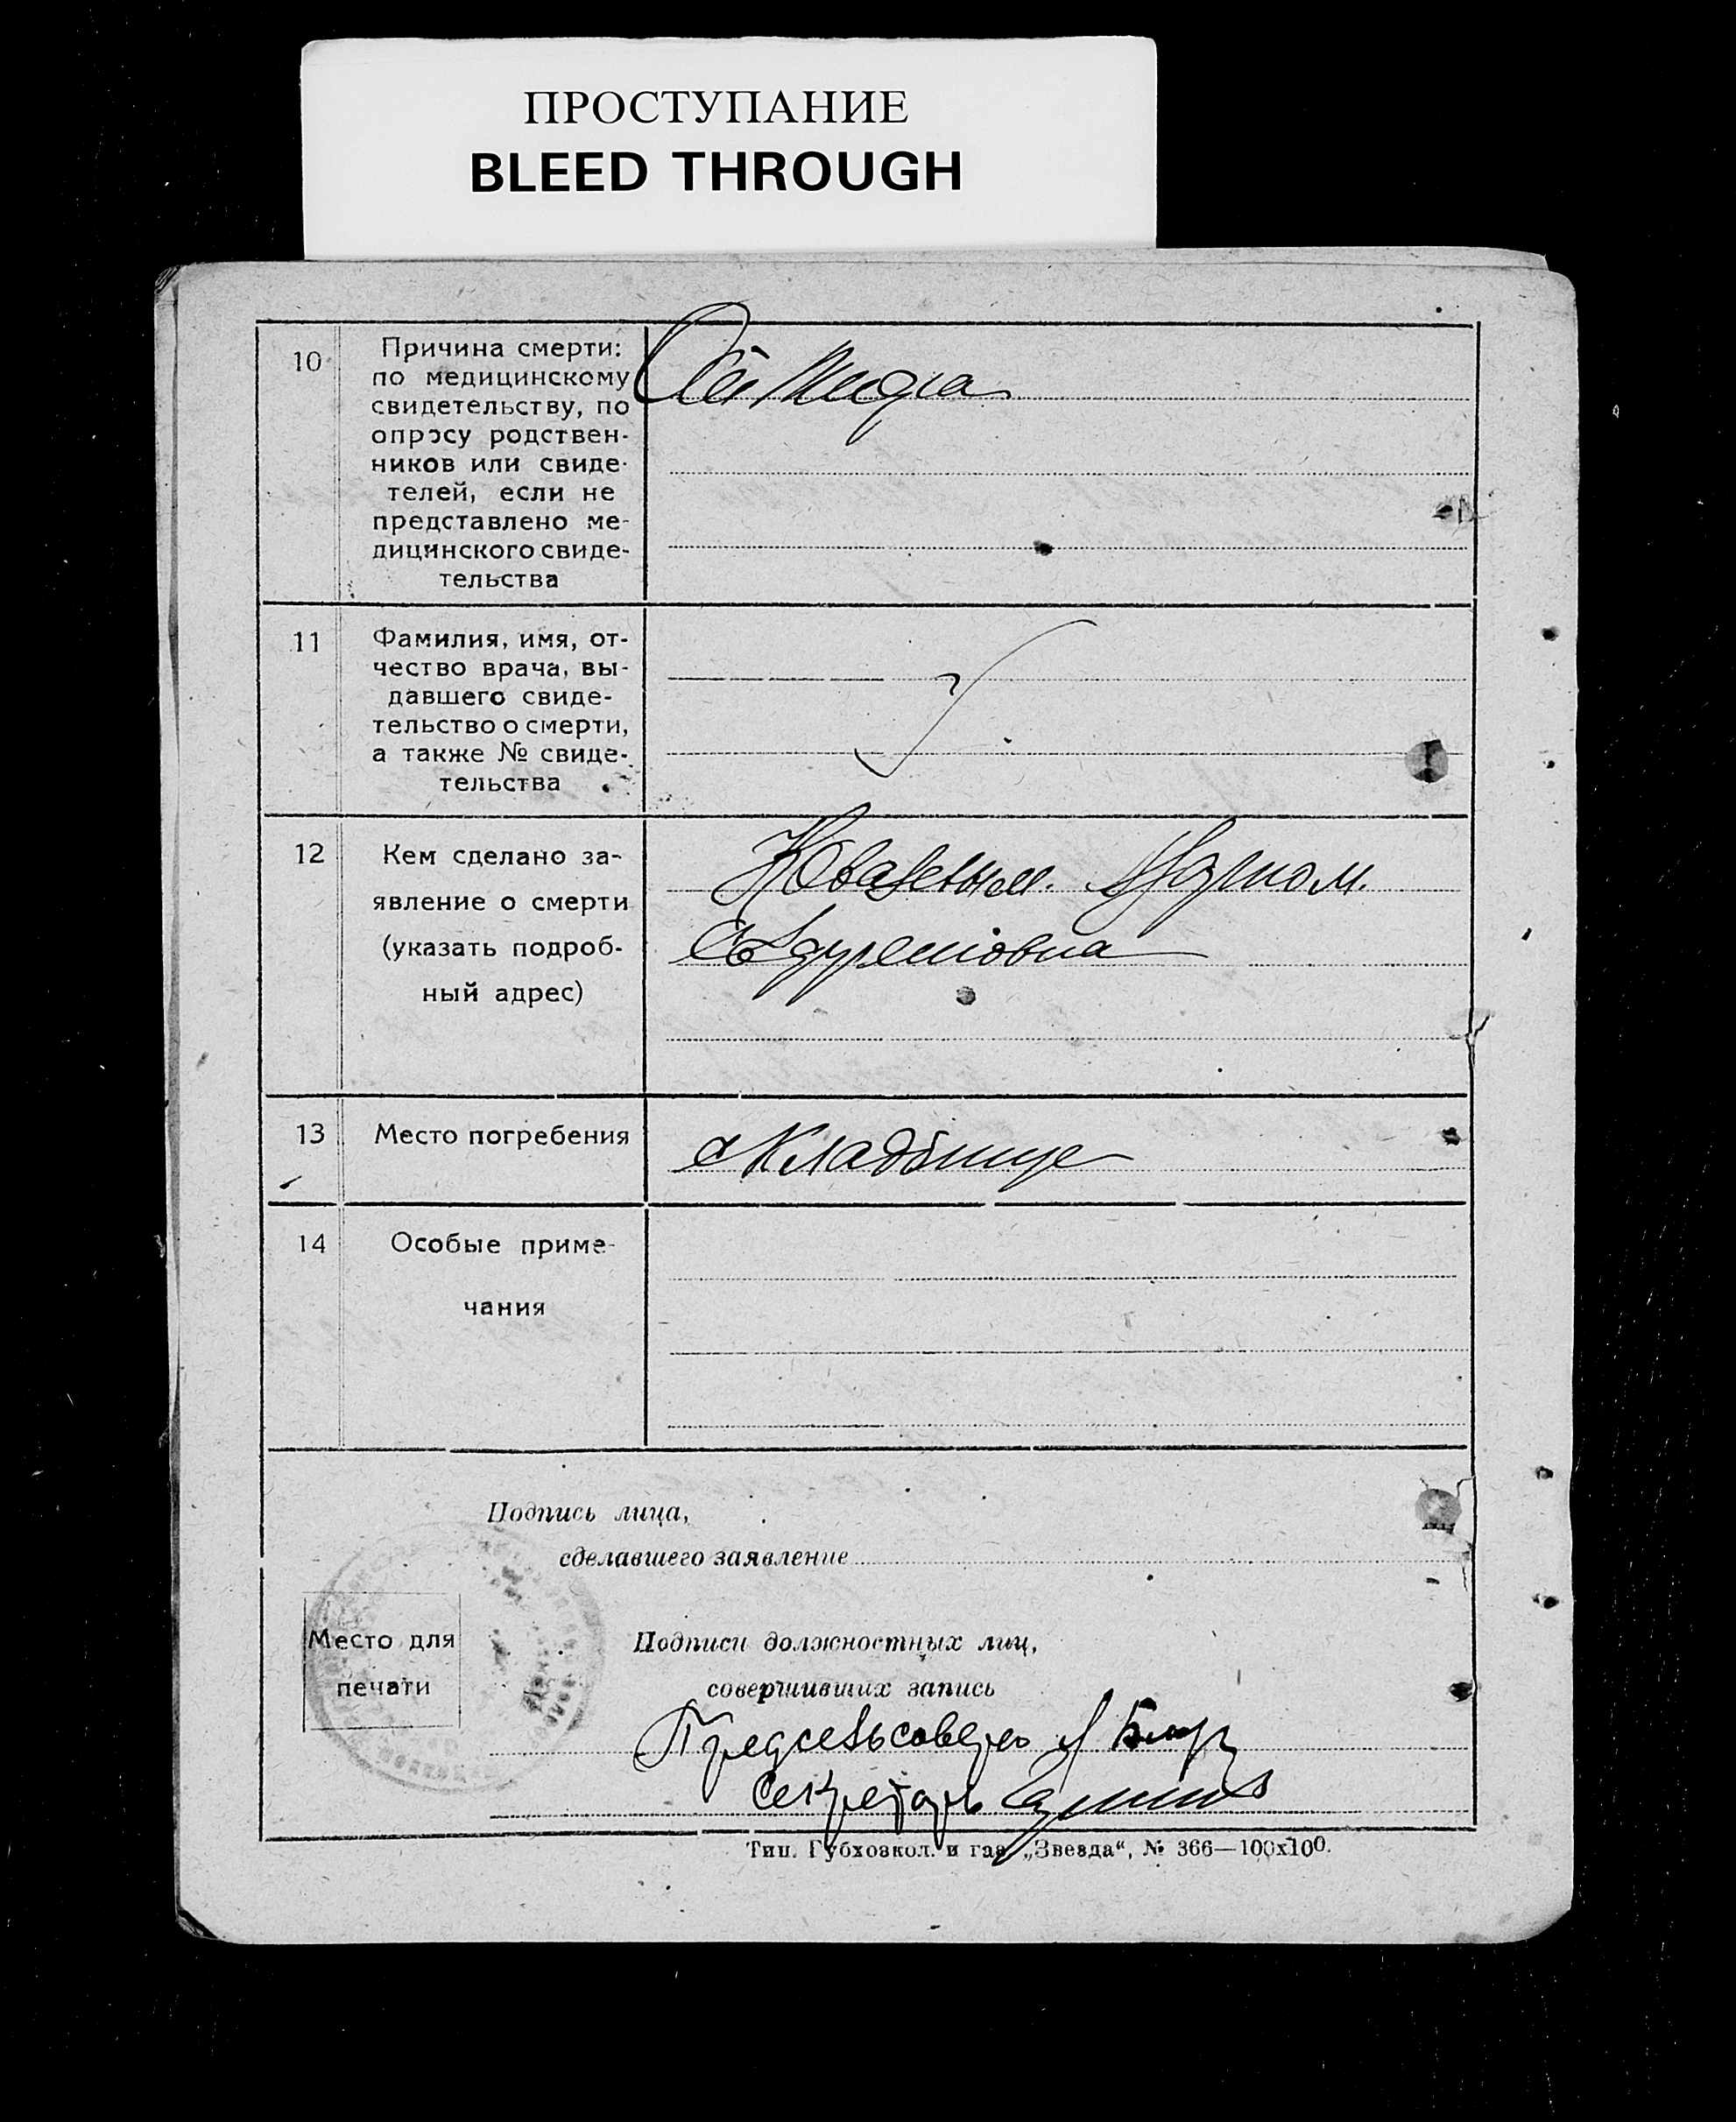 ПРОСТУПАНИЕ
BLEED THROUGH
10 Причина смерти:
по медицинскому
свидетельству, по
опросу родствен-
ников или свиде-
телей, если не
представлено ме-
дицинского свиде-
тельства
11 Фамилия, имя, от-
чество врача, вы-
давшего свиде-
тельство о смерти,
а также № свиде-
тельства
12 Кем сделано за-
явление о смерти
(указать подроб-
ный адрес)
13 Место погребения
Кладбище
14 Особые приме-
чания
Подпись лица,
сделавшего заявление
Место для
печати
Подписи должностных лиц,
совершивших запись
Предсельсовета
Секретарь
Тип. Губхозкол. и газ. „Звезда“, № 366—100х100.